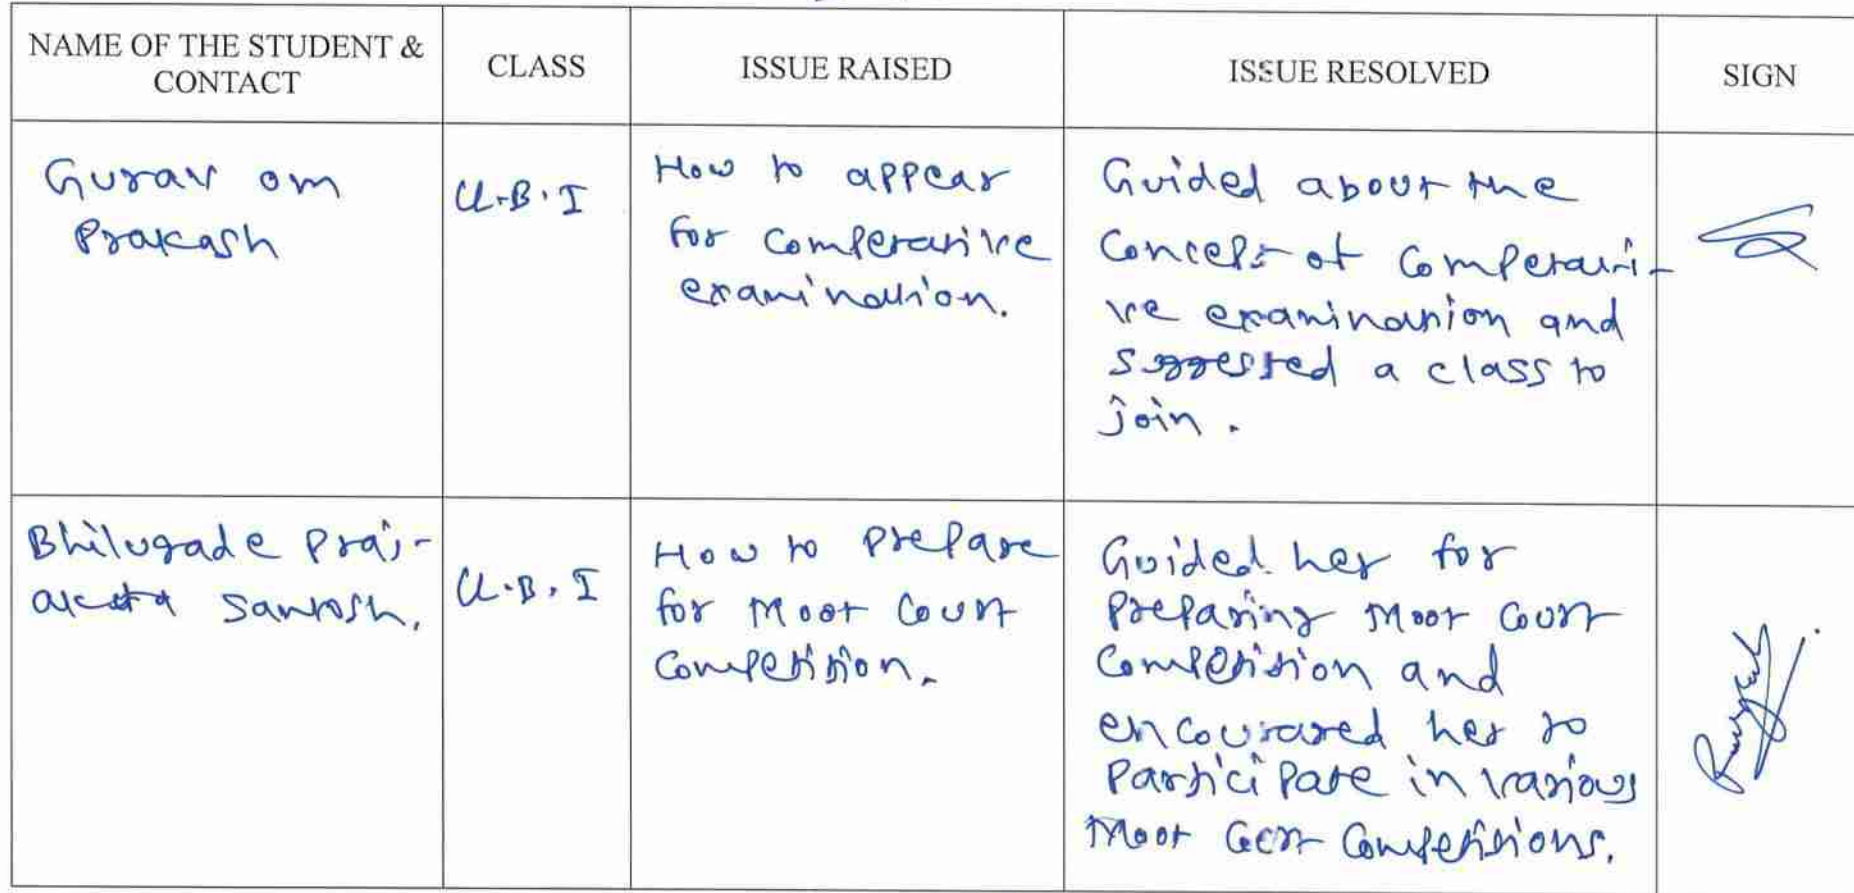 NAME OF THE STUDENT &
CONTACT
CLASS
ISSUE RAISED
ISSUE RESOLVED
SIGN
Gurav om
Prakash
LL.B. I
How to appear
for Comperative
examination.
Guided about the
Concept of Comperati-
ve examination and
suggested a class to
join.
Bhilugade Praj-
akta Santosh.
LL.B. I
How to prepare
for Moot Court
Competition.
Guided her for
Preparing Moot Court
Competition and
encouraged her to
Participate in various
Moot Court Competitions.